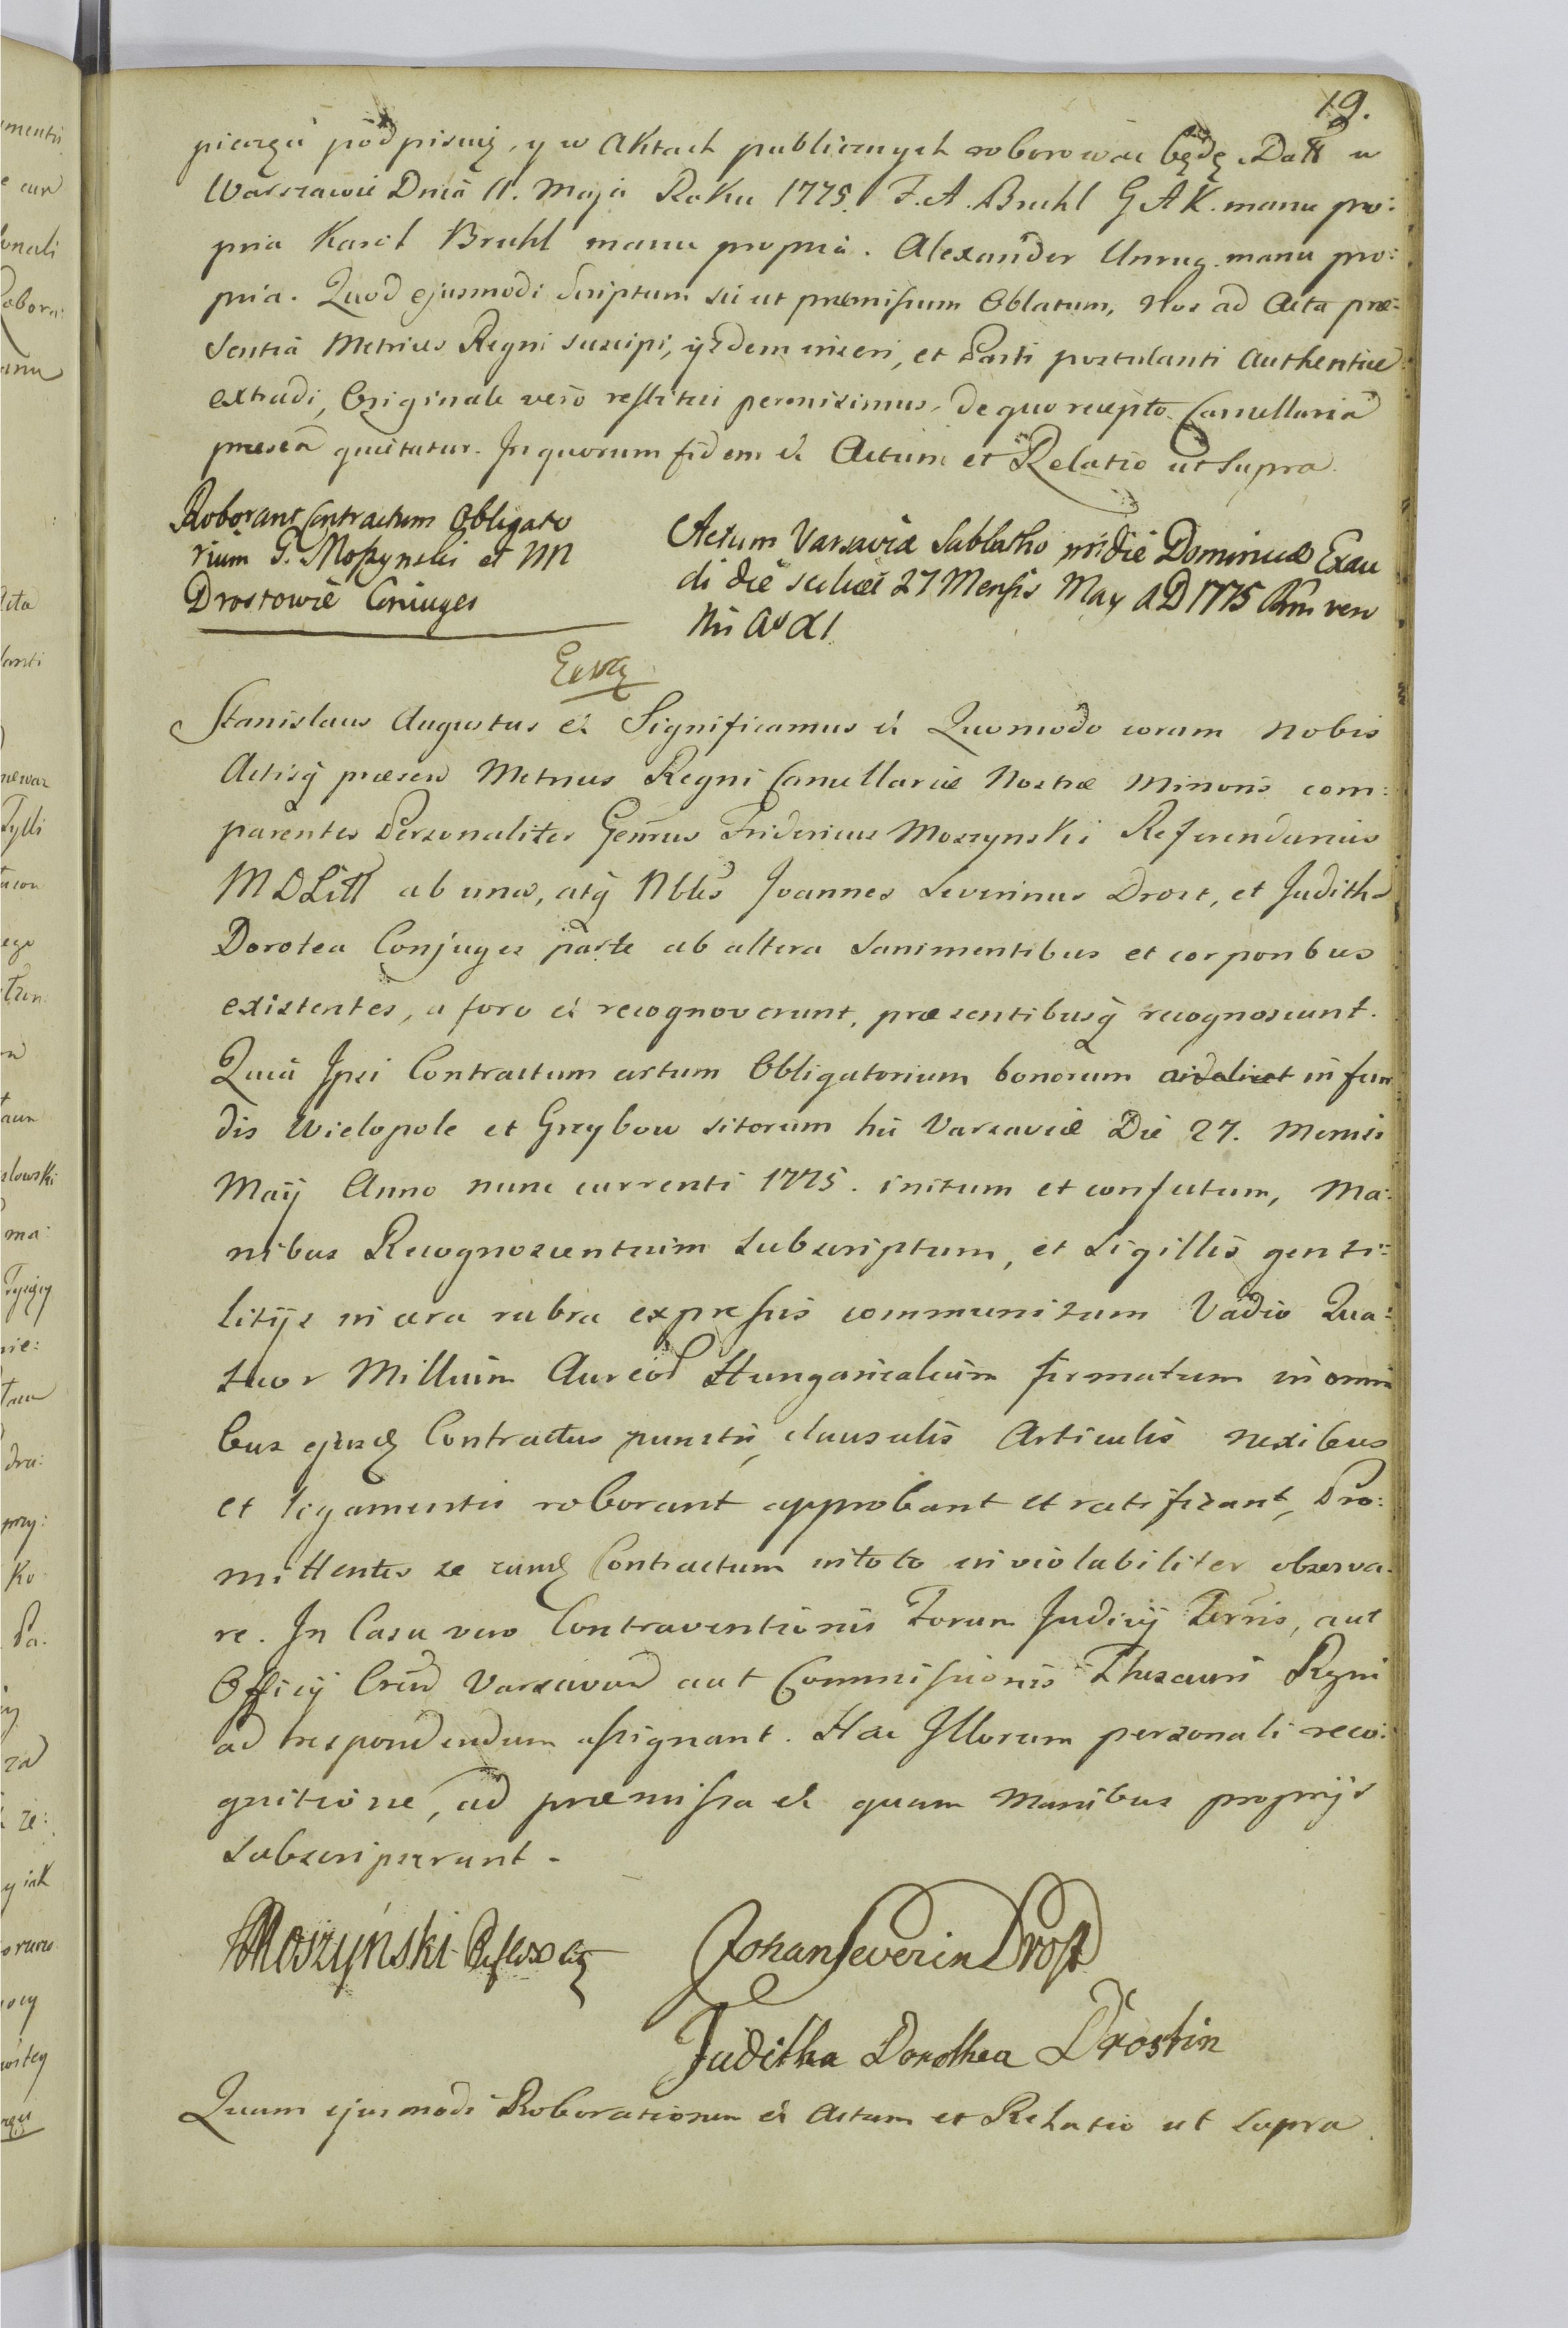 19.
pieczęcią podpisuię, y w Aktach publicznych roborować będę. Datt w
Warszawie Dnia 11. Maja Roku 1775. F. A. Bruhl G A K. manu pro:
pria Karol Bruhl manu propria. Alexander Unrug manu pro:
pria. Quod ejusmodi Scriptum sic ut præmissum Oblatum, Nos ad Acta præ:
sentia Metrices Regni suscipi, ijsdem inseri, et Parti postulanti Authentice
extradi, Originale vero restitui permisimus, de quo recepto Cancellaria
præsens quietatur. In quorum fidem &c Actum et Relatio ut supra.
Roborant Contractum Obligato
rium G. Moszynski et NN
Drostowie Coniuges
Actum Varsaviæ Sabbatho pridie Dominicæ Exau
di die scilicet 27 Mensis May A D 1775
Stanislaus Augustus &c Significamus &c Quomodo coram Nobis
Actisq præsen Metrices Regni Cancellariæ Nostræ Minoris com:
parentes Personaliter Genrus Fridericus Moszynski Referendarius
M D Litt ab una, atq Nbles Joannes Severinus Drost, et Juditha
Dorotea Conjuges parte ab altera sani mentibus et corporibus
existentes, a foro &c recognoverunt, præsentibusq recognoscunt.
Quia Ipsi Contractum certum Obligatorium bonorum in fun
dis Wielopole et Grzybow sitorum hic Varsaviæ Die 27. Mensis
Maij Anno nunc currenti 1775. initum et confectum, Ma:
nibus Recognoscentium subscriptum, et Sigillis genti:
litijs in cera rubra expressis communitum Vadio Qua:
tuor Millium Aureor Hungaricalium firmatum in omni
bus ejusd Contractus punctis, clausulis Articulis nexibus
et ligamentis roborant approbant et ratificant, Pro:
mittentes se eund Contractum in toto inviolabiliter observa:
re. In Casu vero Contraventionis Forum Judicij Terris, aut
Officij Cren Varsavien aut Commissionis Thesauri Regni
ad respondendum assignant. Hac Illorum personali reco:
gnitione, ad præmissa &c quam Manibus proprijs
subscripserunt.
FMoszyński
Johan Severin Drost
Juditha Dorothea Drostin
Quam ejusmodi Roborationem &c Actum et Relatio ut supra.